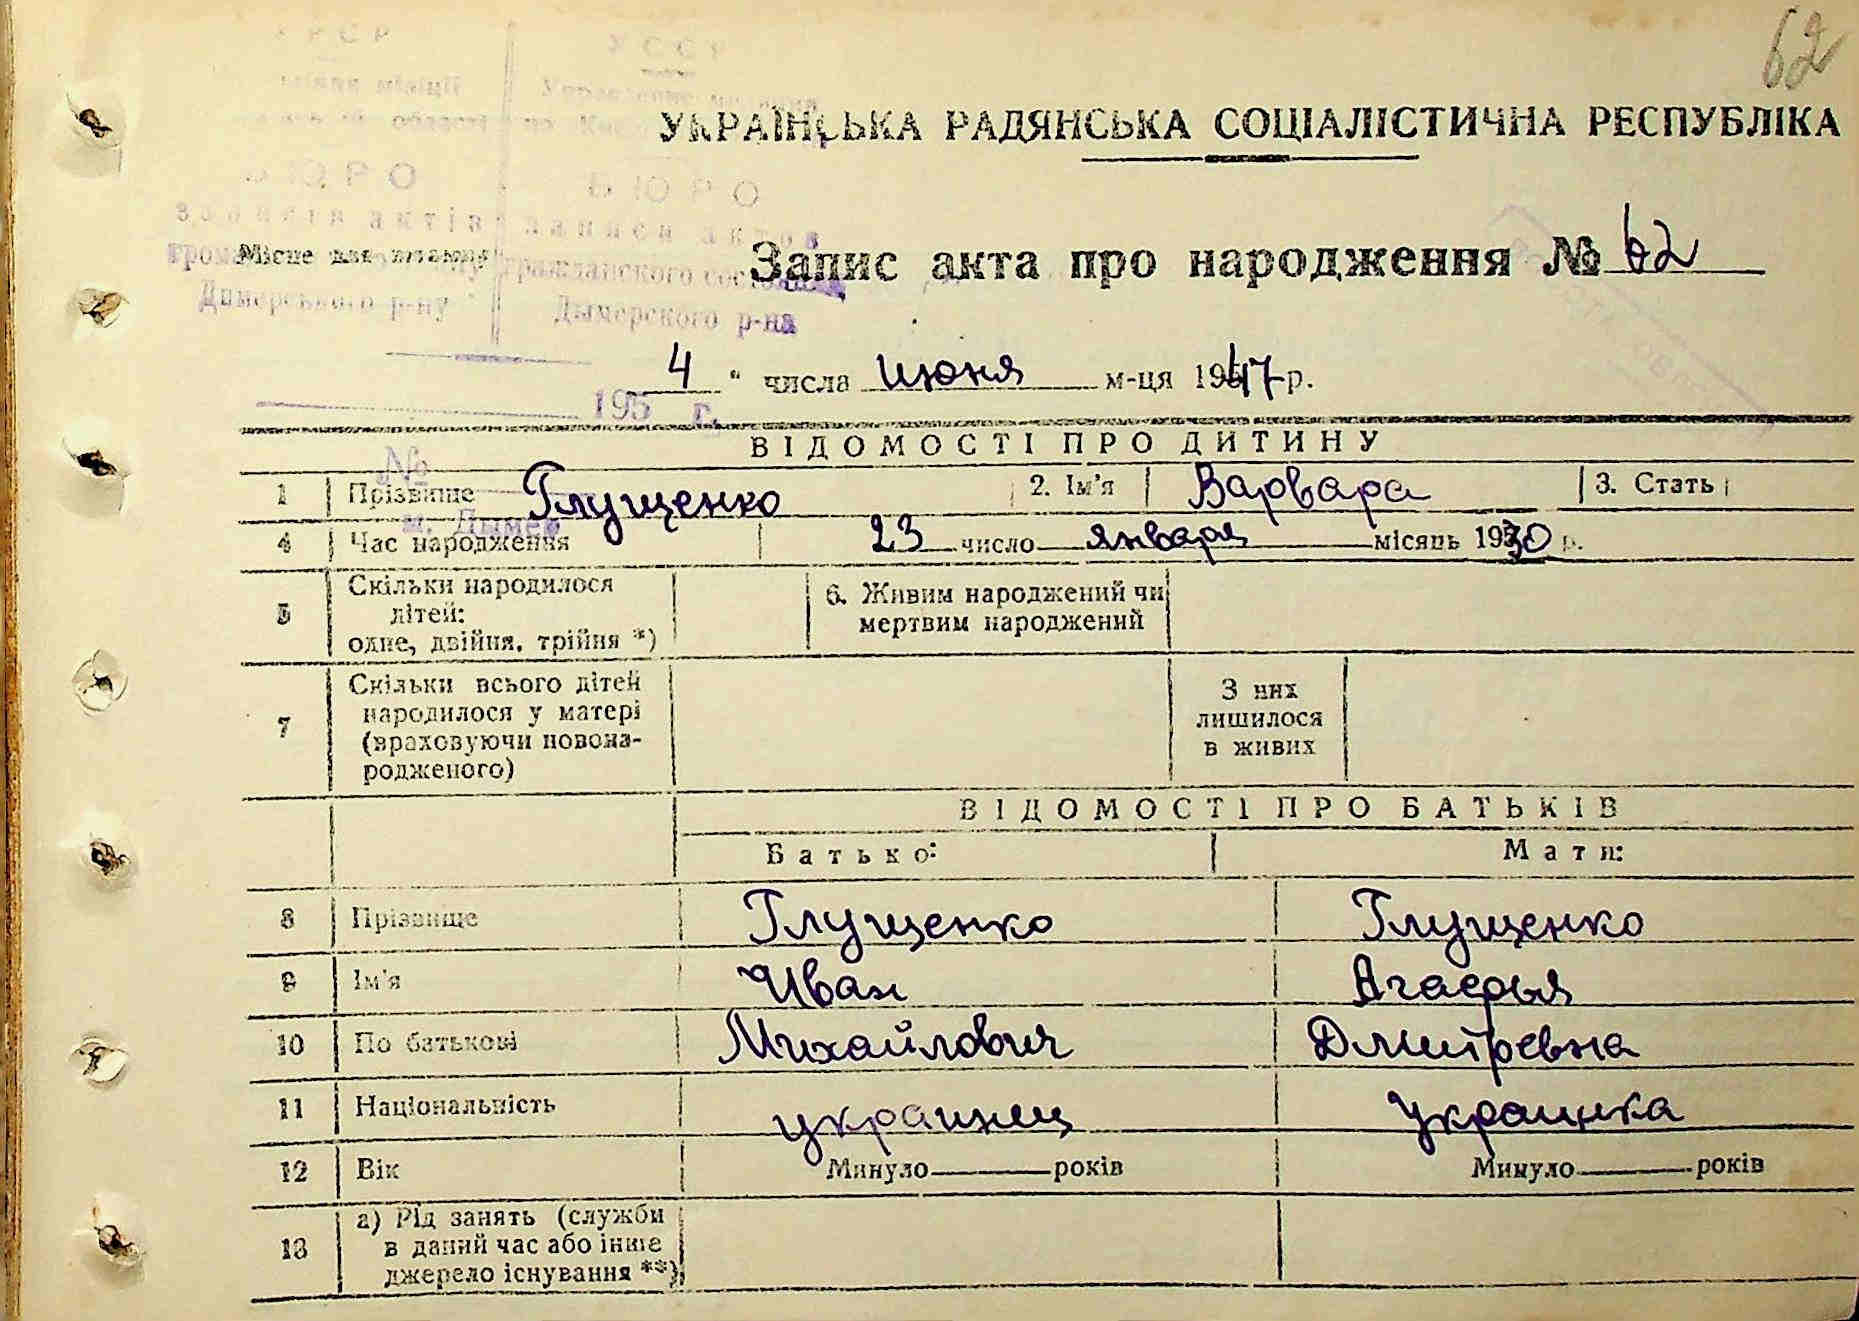 62
УССР
БЮРО
БЮРО
УКРАЇНСЬКА РАДЯНСЬКА СОЦІАЛІСТИЧНА РЕСПУБЛІКА
записи актов
Місце для штампу
гражданского состояния
Димерського р-ну
Дымерского р-на
Запис акта про народження № 62
4 " числа июня м-ця 1947 р.
195 г.
ВІДОМОСТІ ПРО ДИТИНУ
№
1 Прізвище Глущенко 2. Ім'я Варвара 3. Стать
м. Дымер
4 Час народження 23 число января місяць 1930 р.
5 Скільки народилося
дітей:
одне, двійня, трійня *)
6. Живим народжений чи
мертвим народжений
7 Скільки всього дітей
народилося у матері
(враховуючи новона-
родженого)
З них
лишилося
в живих
ВІДОМОСТІ ПРО БАТЬКІВ
Батько: Мати:
8 Прізвище Глущенко Глущенко
9 Ім'я Иван Агафья
10 По батькові Михайлович Дмитревна
11 Національність украинец украинка
12 Вік Минуло років Минуло років
13 а) Рід занять (служби
в даний час або інше
джерело існування **)